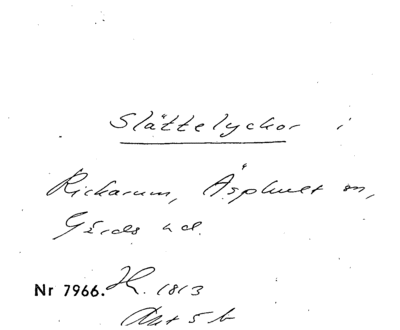 Slättelyckor i
Rickarum, Äsphult sn,
Gärds hd.
Nr 7966. H. 1813
Akt 5 b